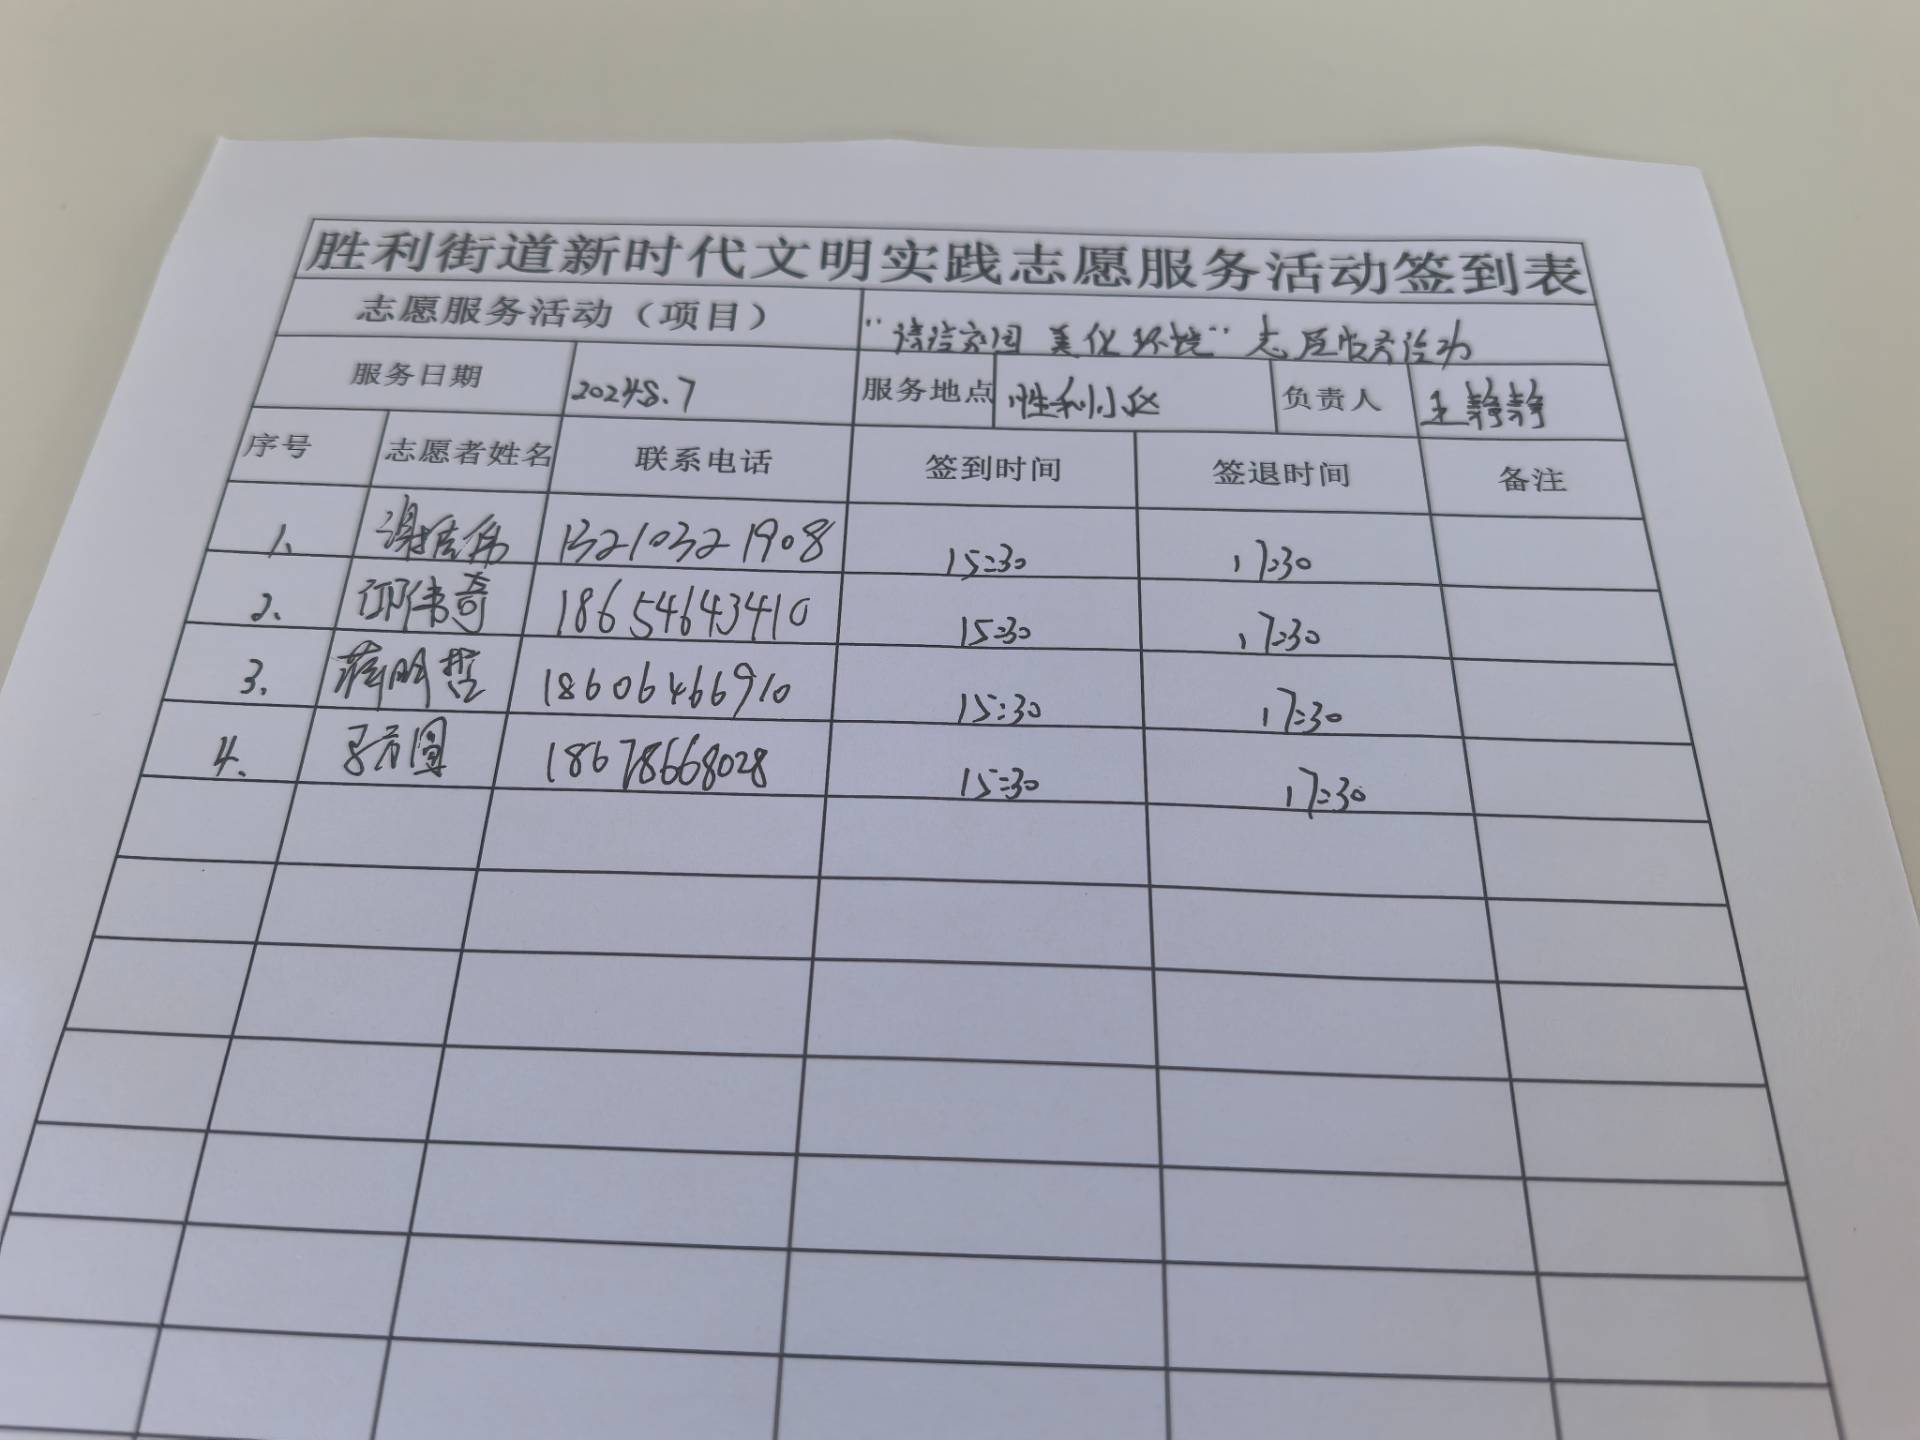 胜利街道新时代文明实践志愿服务活动签到表
志愿服务活动（项目） “清洁家园 美化环境”志愿服务活动
服务日期 2024.8.7 服务地点 胜利小区 负责人 王静静
序号 志愿者姓名 联系电话 签到时间 签退时间 备注
1、 13210321908 15:30 17:30
2、 邱伟奇 18654643410 15:30 17:30
3. 蒋明哲 18606466910 15:30 17:30
4. 18678668028 15:30 17:30